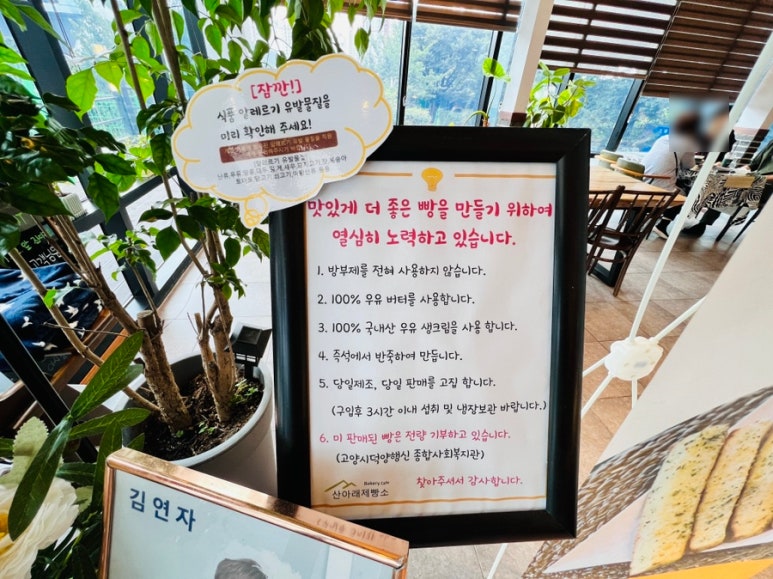 [잠깐!]
식품 알레르기 유발물질을
미리 확인해 주세요!
맛있게 더 좋은 빵을 만들기 위하여
열심히 노력하고 있습니다.
1. 방부제를 전혀 사용하지 않습니다.
2. 100% 우유 버터를 사용합니다.
3. 100% 국내산 우유 생크림을 사용 합니다.
4. 즉석에서 반죽하여 만듭니다.
5. 당일제조, 당일 판매를 고집 합니다.
(구입후 3시간 이내 섭취 및 냉장보관 바랍니다.)
6. 미 판매된 빵은 전량 기부하고 있습니다.
(고양시덕양행신 종합사회복지관)
Bakery cafe
산아래제빵소
찾아주셔서 감사합니다.
김연자